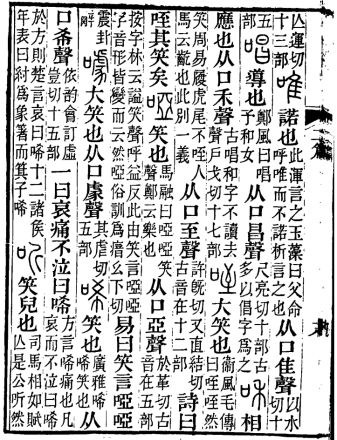 亾運切十三部唯諾也此渾言之玉藻曰父命呼唯而不諾析言之也从口隹聲以水切十
五部唱導也鄭風曰唱予和女从口昌聲尺亮切十部古多以倡字爲之和相
應也从口禾聲古唱和字不讀去聲戶戈切十七部咥大笑也衞風毛傳曰咥咥然
笑周易履虎尾不咥人馬云齕也此別一義从口至聲許旣切又直結切古音在十二部詩曰
咥其笑矣啞笑也馬融曰啞啞笑聲鄭云樂也从口亞聲於革切古音在五部
按字林云謚笑聲呼益反此由笑言啞啞字音形皆變而云然啞俗訓爲瘖幺下切易曰笑言啞啞
震卦辭噱大笑也从口豦聲其虐切五部唏笑也廣雅唏唏笑也从
口希聲依韵會訂虛豈切十五部一曰哀痛不泣曰唏方言唏痛也凡哀而不泣曰唏
於方則楚言哀曰唏十二諸矦年表曰紂爲象箸而箕子唏听笑皃也司馬相如賦亾是公听然